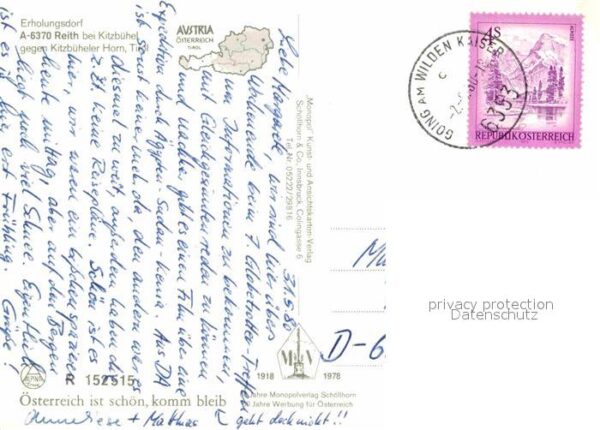 Erholungsdorf
A-6370 Reith bei Kitzbühel
gegen Kitzbüheler Horn, Tirol
AUSTRIA
ÖSTERREICH
TIROL
31.5.80
wir sind hier übers
Wochenende beim 7. Globetrotter-Treffen
um Informationen zu bekommen,
mit Gleichgesinnten reden zu können
und nachher gibt es einen Film über eine
Expedition durch Ägypten-Sudan-Kenia. Aus DA
ist sonst keiner da, den andern war es
diesmal zu weit, außerdem haben sie
z. Zt. keine Reisepläne. Schön ist es
hier, wir waren ein bißchen spazieren
heute mittag, aber auf den Bergen
liegt noch viel Schnee. Eigentlich
ist es hier erst Frühling. Grüße!
Anneliese + Mathias
geht doch nicht!!
"Monopol" Kunst- und Ansichtskarten-Verlag
Schöllhorn & Co., Innsbruck, Colingasse 6
Tel.-Nr. 05222/29816
R 152515
Österreich ist schön, komm bleib
1918
1978
Jahre Monopolverlag Schöllhorn
Jahre Werbung für Österreich
4S
REPUBLIK ÖSTERREICH
GOING AM WILDEN KAISER
6353
D-6
privacy protection
Datenschutz